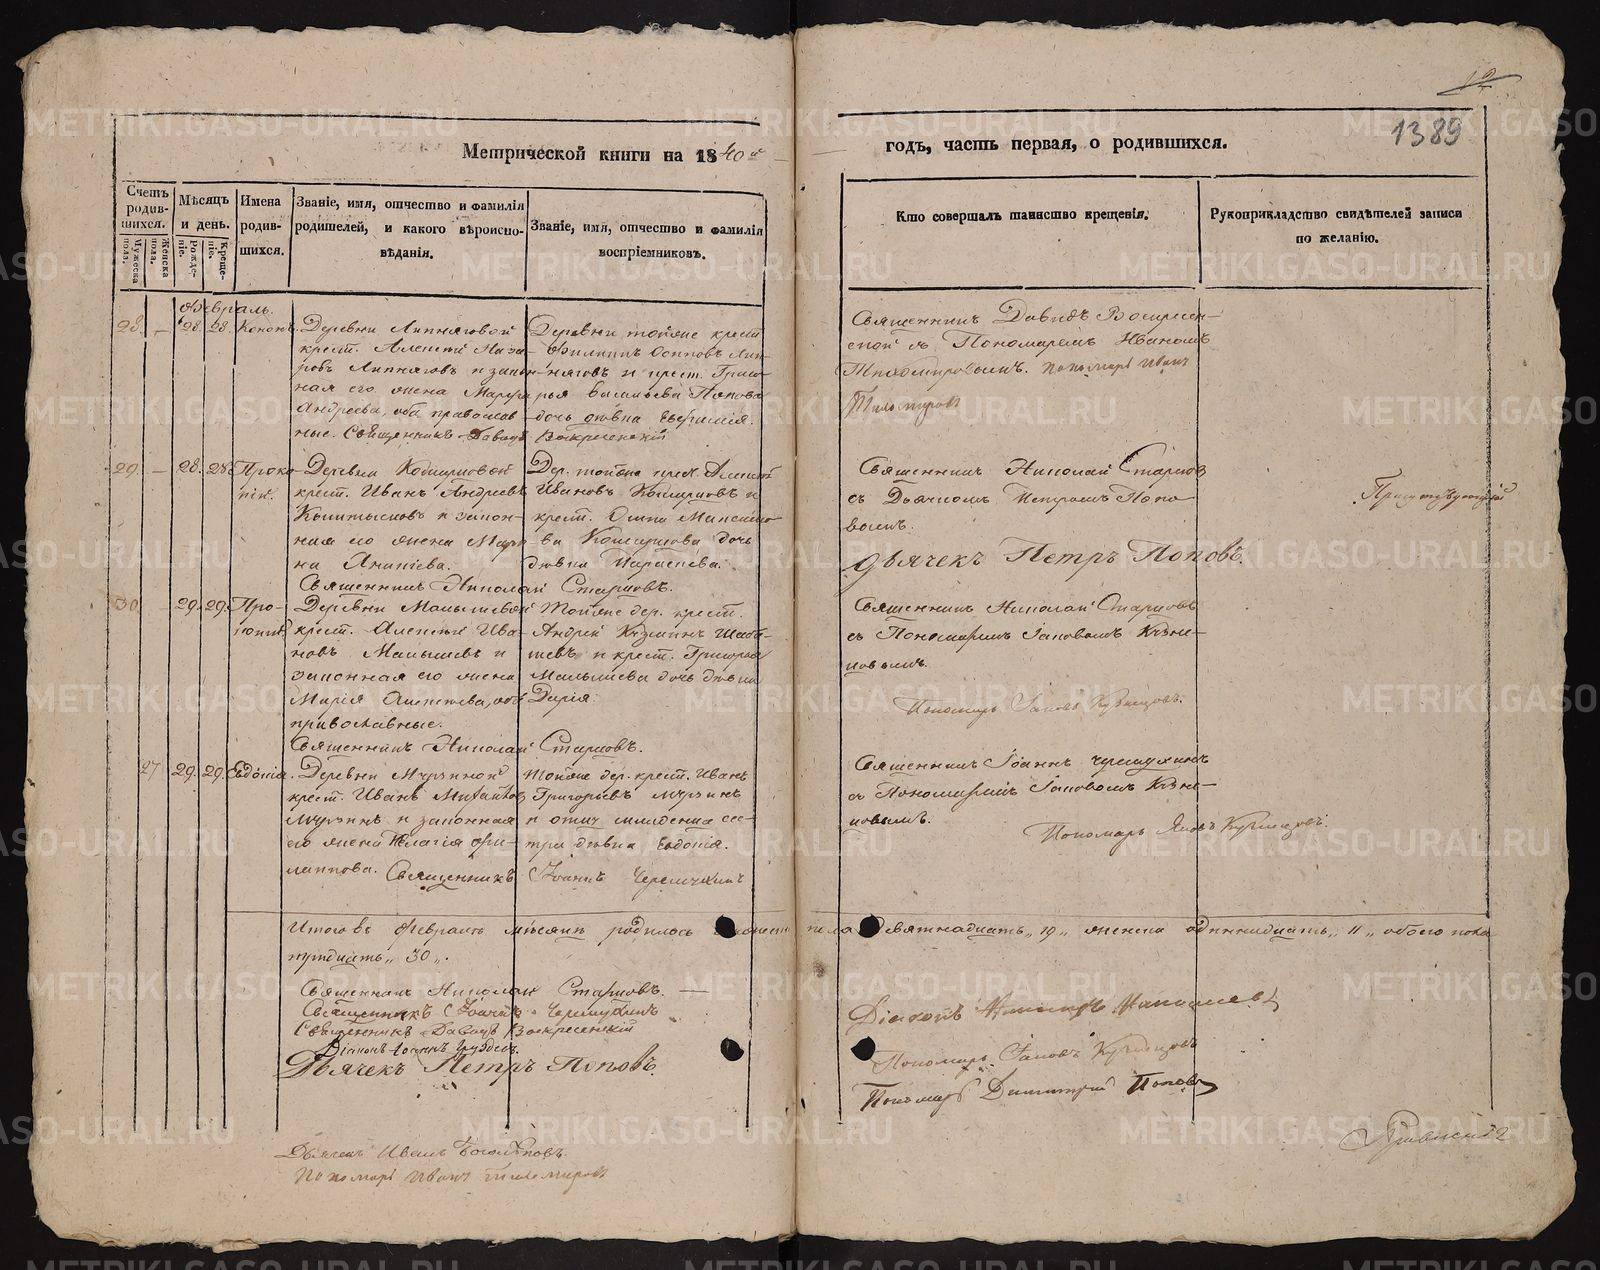 1389
Метрической книги на 1840й
годъ, часть первая, о родившихся.
Счетъ родив- шихся.
Мужеска пола.
Женска пола.
Мѣсяцъ и день.
Рожде- ніе.
Креще- ніе.
Имена родив- шихся.
Званіе, имя, отчество и фамилія родителей, и какого вѣроиспо- вѣданія.
Званіе, имя, отчество и фамилія воспріемниковъ.
Кто совершалъ таинство крещенія.
Рукоприкладство свидѣтелей записи по желанію.
Февраль.
28. – 28. 28. Кононъ.
Деревни Липняговой
крест. Алексей Наза-
ровъ Липняговъ и закон-
ная его жена
Андреева, оба православ-
ные. Священникъ Давидъ Воскресенскій
Деревни тойже крест.
Филиппъ Осиповъ Лип-
няговъ и крест. Григо-
рья Васильева Попова
дочь дѣвка Евфимія.
Священникъ Давидъ Воскресен-
ской съ Пономаремъ Иваномъ
Тихомировымъ. Пономарь Иванъ
Тихомировъ
29. – 28. 28. Проко-
пій.
Деревни
крест. Иванъ Андреевъ
и закон-
ная его жена Мари-
на Ананіева.
Священникъ Николай Старцовъ.
Дер. тойже крест. Алексей
Ивановъ и
крест.
дочь
дѣвка Параскева.
Священникъ Николай Старцовъ
съ Дьячкомъ Петромъ Попо-
вымъ.
Дьячекъ Петръ Поповъ.
30. 29. 29. Про-
Деревни Малышевой
крест. Алексей Ива-
новъ Малышевъ и
законная его жена
Марія Алексеева, оба
православные.
Священникъ Николай Старцовъ.
Тойже дер. крест.
Андрей Кузминъ
и крест. Григорья
Малышева дочь дѣвка
Дарія.
Священникъ Николай Старцовъ
съ Пономаремъ Іаковомъ Кузне-
цовымъ.
Пономарь Іаковъ Кузнецовъ.
27 29. 29. Евдокія.
Деревни Мурзиной
крест. Иванъ Михайловъ
Мурзинъ и законная
его жена Пелагія Фи-
липпова. Священникъ Іоаннъ Черемухинъ
Тойже дер. крест. Иванъ
Григорьевъ Мурзинъ
и отцу младенца се-
стра дѣвка Евдокія.
Священникъ Іоаннъ Черемухинъ
съ Пономаремъ Іаковомъ Кузне-
цовымъ.
Пономарь Яковъ Кузнецовъ.
Итого въ Февралѣ мѣсяцѣ родилось мужеска пола девятнадцать „19„ женска одиннадцать „11„ обоего пола
тридцать „30„.
Священникъ Николай Старцовъ.
Священникъ Іоаннъ Черемухинъ
Священникъ Давидъ Воскресенскій
Діаконъ Іоаннъ
Дьячекъ Петръ Поповъ.
Діаконъ
Пономарь Іаковъ Кузнецовъ
Пономарь Димитрій Поповъ
Дьячекъ Иванъ
Пономарь Иванъ Тихомировъ
METRIKI.GASO-URAL.RU